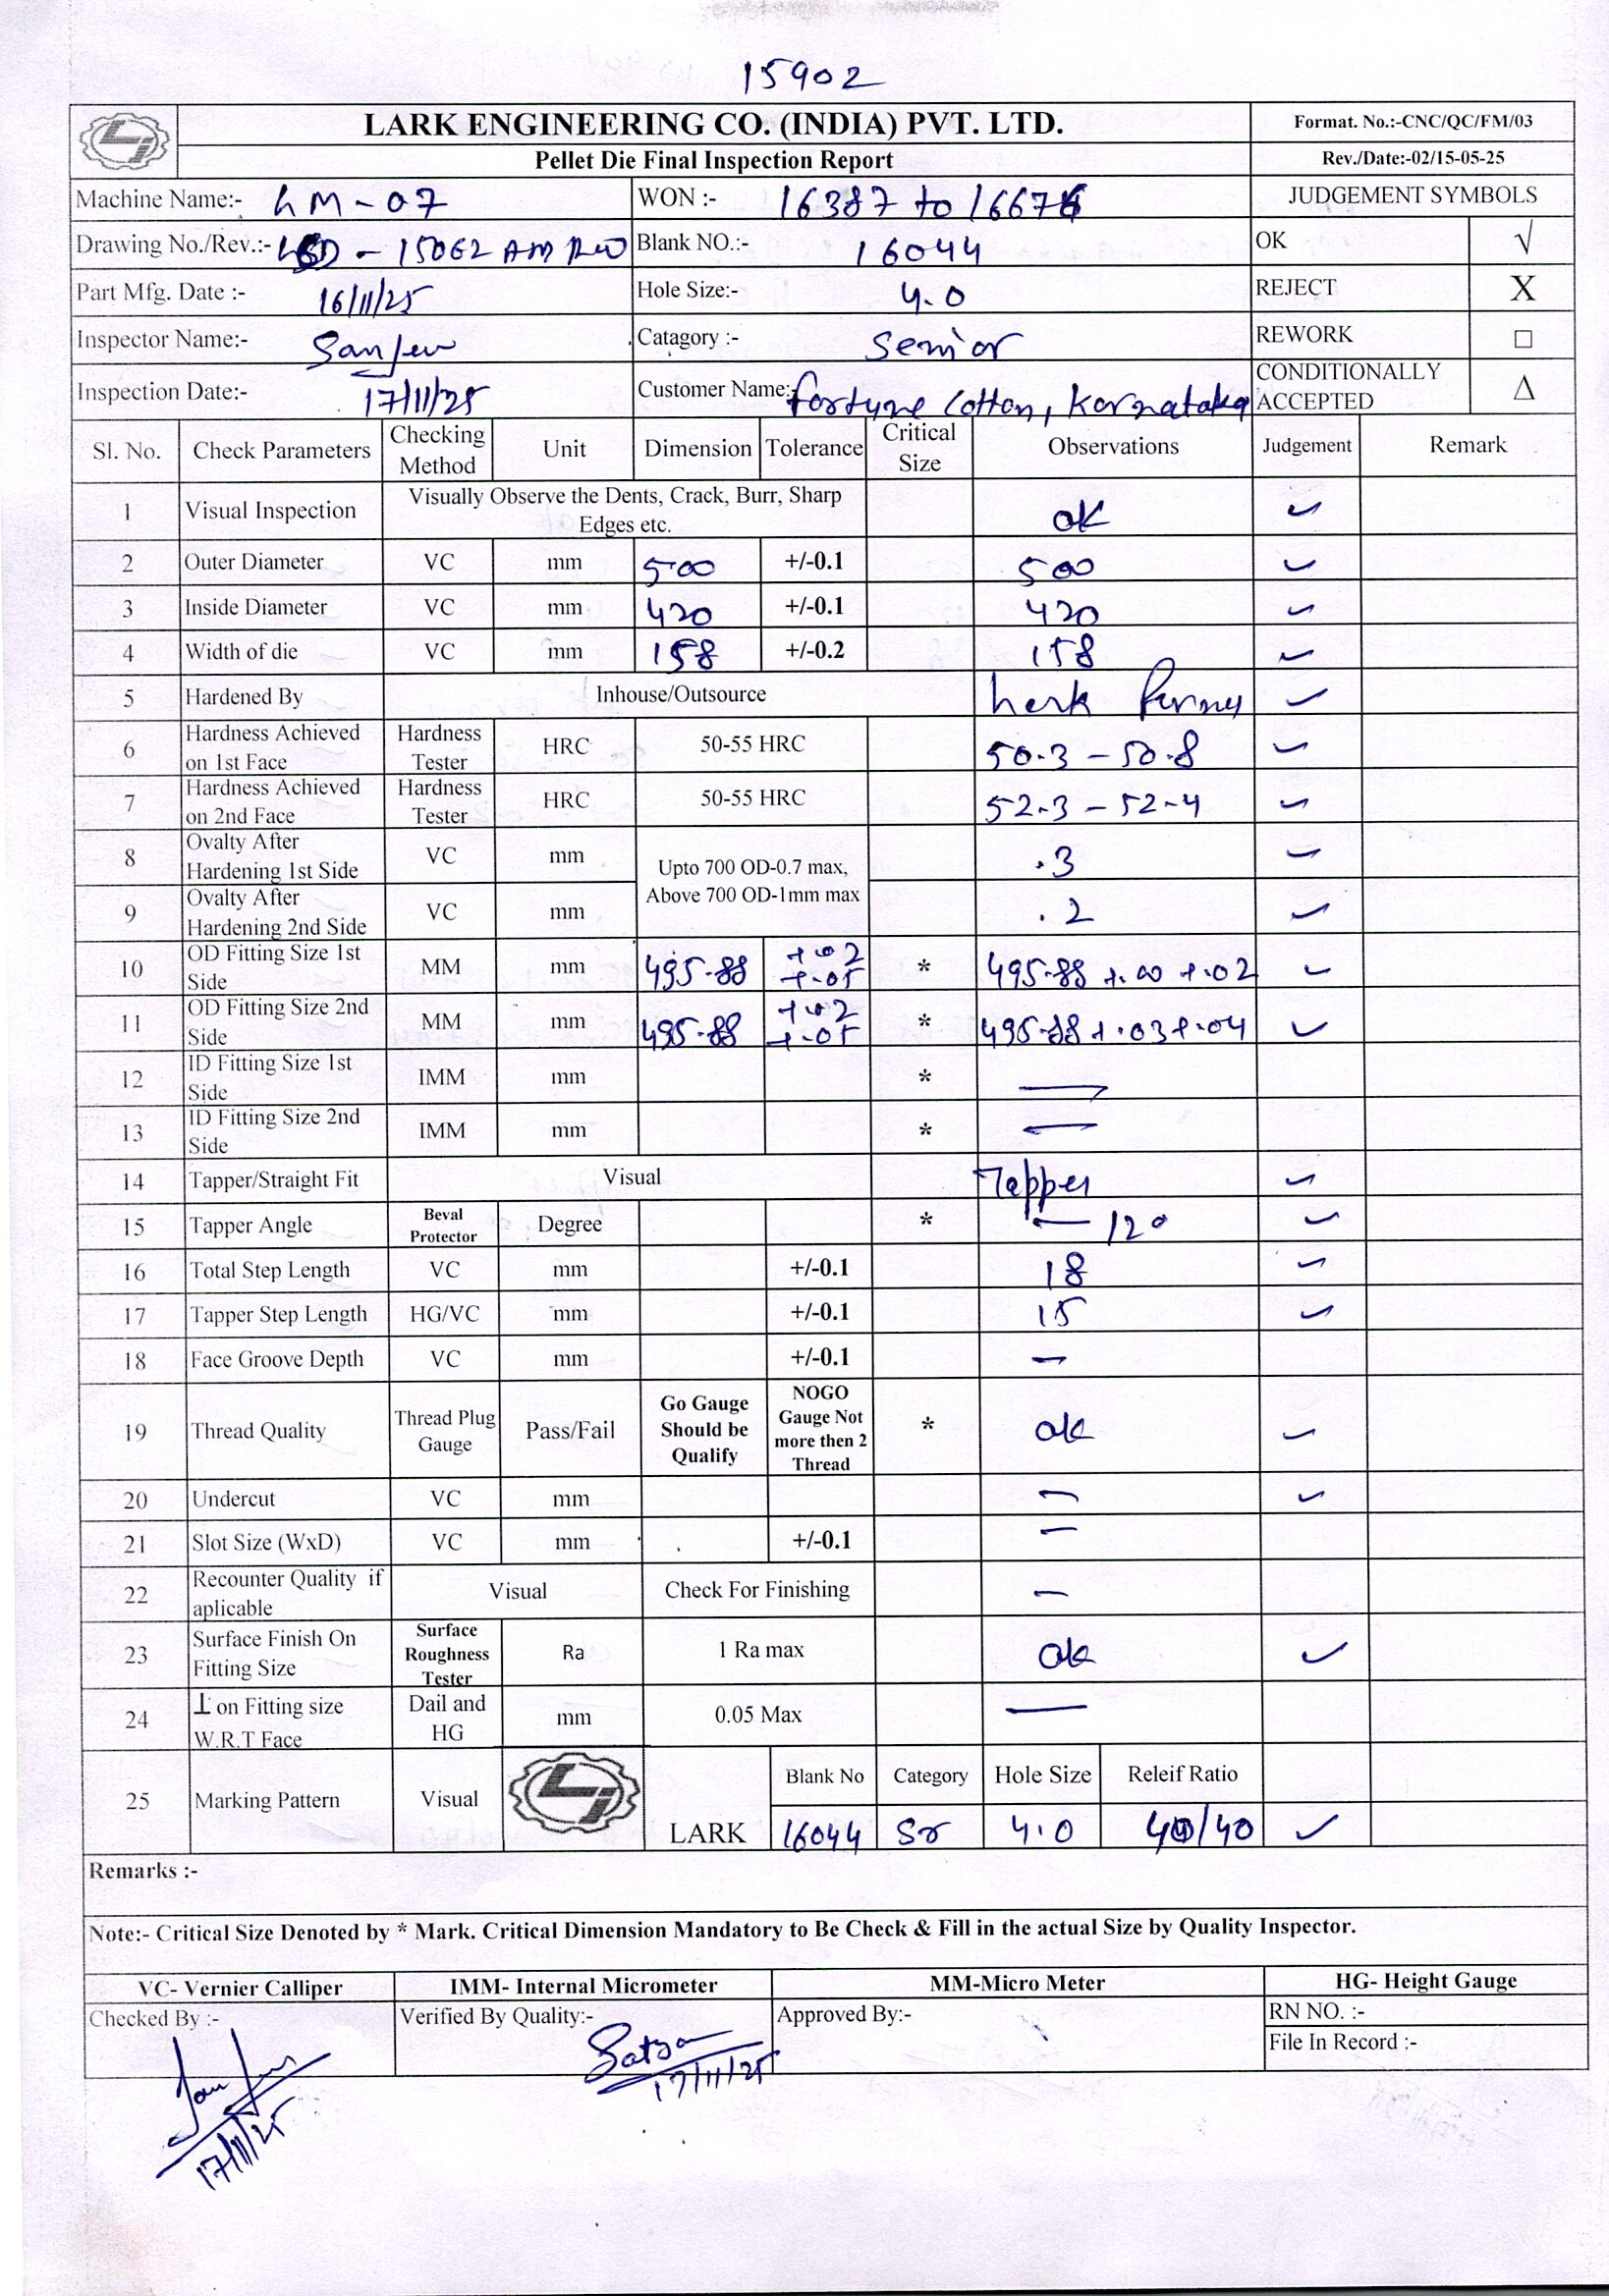 15902
LARK ENGINEERING CO. (INDIA) PVT. LTD.
Format. No.:-CNC/QC/FM/03
Pellet Die Final Inspection Report
Rev./Date:-02/15-05-25
Machine Name:- LM-07 WON :- 16387 to 16676 JUDGEMENT SYMBOLS
Drawing No./Rev.:- - 15062 AM Blank NO.:- 16044 OK √
Part Mfg. Date :- 16/11/25 Hole Size:- 4.0 REJECT X
Inspector Name:- Sanjeev Catagory :- Senior REWORK □
Inspection Date:- 17/11/25 Customer Name:- Fortune Cotton, Karnataka CONDITIONALLY ACCEPTED Δ
Sl. No. Check Parameters Checking Method Unit Dimension Tolerance Critical Size Observations Judgement Remark
1 Visual Inspection Visually Observe the Dents, Crack, Burr, Sharp Edges etc. ok ✓
2 Outer Diameter VC mm 500 +/-0.1 500 ✓
3 Inside Diameter VC mm 420 +/-0.1 420 ✓
4 Width of die VC mm 158 +/-0.2 158 ✓
5 Hardened By Inhouse/Outsource ✓
6 Hardness Achieved on 1st Face Hardness Tester HRC 50-55 HRC 50.3 - 50.8 ✓
7 Hardness Achieved on 2nd Face Hardness Tester HRC 50-55 HRC 52.3 - 52.4 ✓
8 Ovalty After Hardening 1st Side VC mm Upto 700 OD-0.7 max, Above 700 OD-1mm max .3 ✓
9 Ovalty After Hardening 2nd Side VC mm .2 ✓
10 OD Fitting Size 1st Side MM mm 495.88 +.02 +.05 * 495.88 +.00 +.02 ✓
11 OD Fitting Size 2nd Side MM mm 495.88 +.02 +.05 * 495.88 +.03 +.04 ✓
12 ID Fitting Size 1st Side IMM mm * —
13 ID Fitting Size 2nd Side IMM mm * —
14 Tapper/Straight Fit Visual Tapper ✓
15 Tapper Angle Beval Protector Degree * — 12° ✓
16 Total Step Length VC mm +/-0.1 18 ✓
17 Tapper Step Length HG/VC mm +/-0.1 15 ✓
18 Face Groove Depth VC mm +/-0.1 —
19 Thread Quality Thread Plug Gauge Pass/Fail Go Gauge Should be Qualify NOGO Gauge Not more then 2 Thread * ok ✓
20 Undercut VC mm — ✓
21 Slot Size (WxD) VC mm +/-0.1 —
22 Recounter Quality if aplicable Visual Check For Finishing —
23 Surface Finish On Fitting Size Surface Roughness Tester Ra 1 Ra max ok ✓
24 ⊥ on Fitting size W.R.T Face Dail and HG mm 0.05 Max —
25 Marking Pattern Visual LARK Blank No Category Hole Size Releif Ratio
16044 Sr 4.0 40/40 ✓
Remarks :-
Note:- Critical Size Denoted by * Mark. Critical Dimension Mandatory to Be Check & Fill in the actual Size by Quality Inspector.
VC- Vernier Calliper IMM- Internal Micrometer MM-Micro Meter HG- Height Gauge
Checked By :- Verified By Quality:- Approved By:- RN NO. :-
File In Record :-
17/11/25
17/11/25